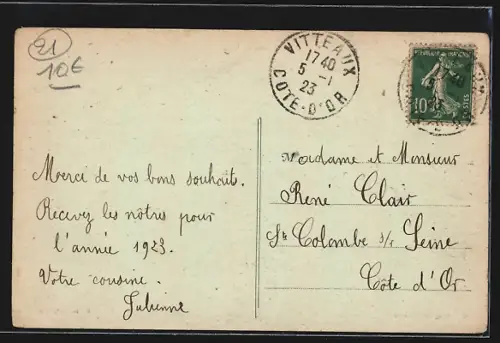 21
10€
VITTEAUX
17 40
5 - 1
23
COTE-D'OR
10
Merci de vos bons souhaits.
Recevez les nôtres pour
l'année 1923.
Votre cousine.
Julienne
Madame et Monsieur
René Clair
Ste Colombe s/r Seine
Côte d'Or